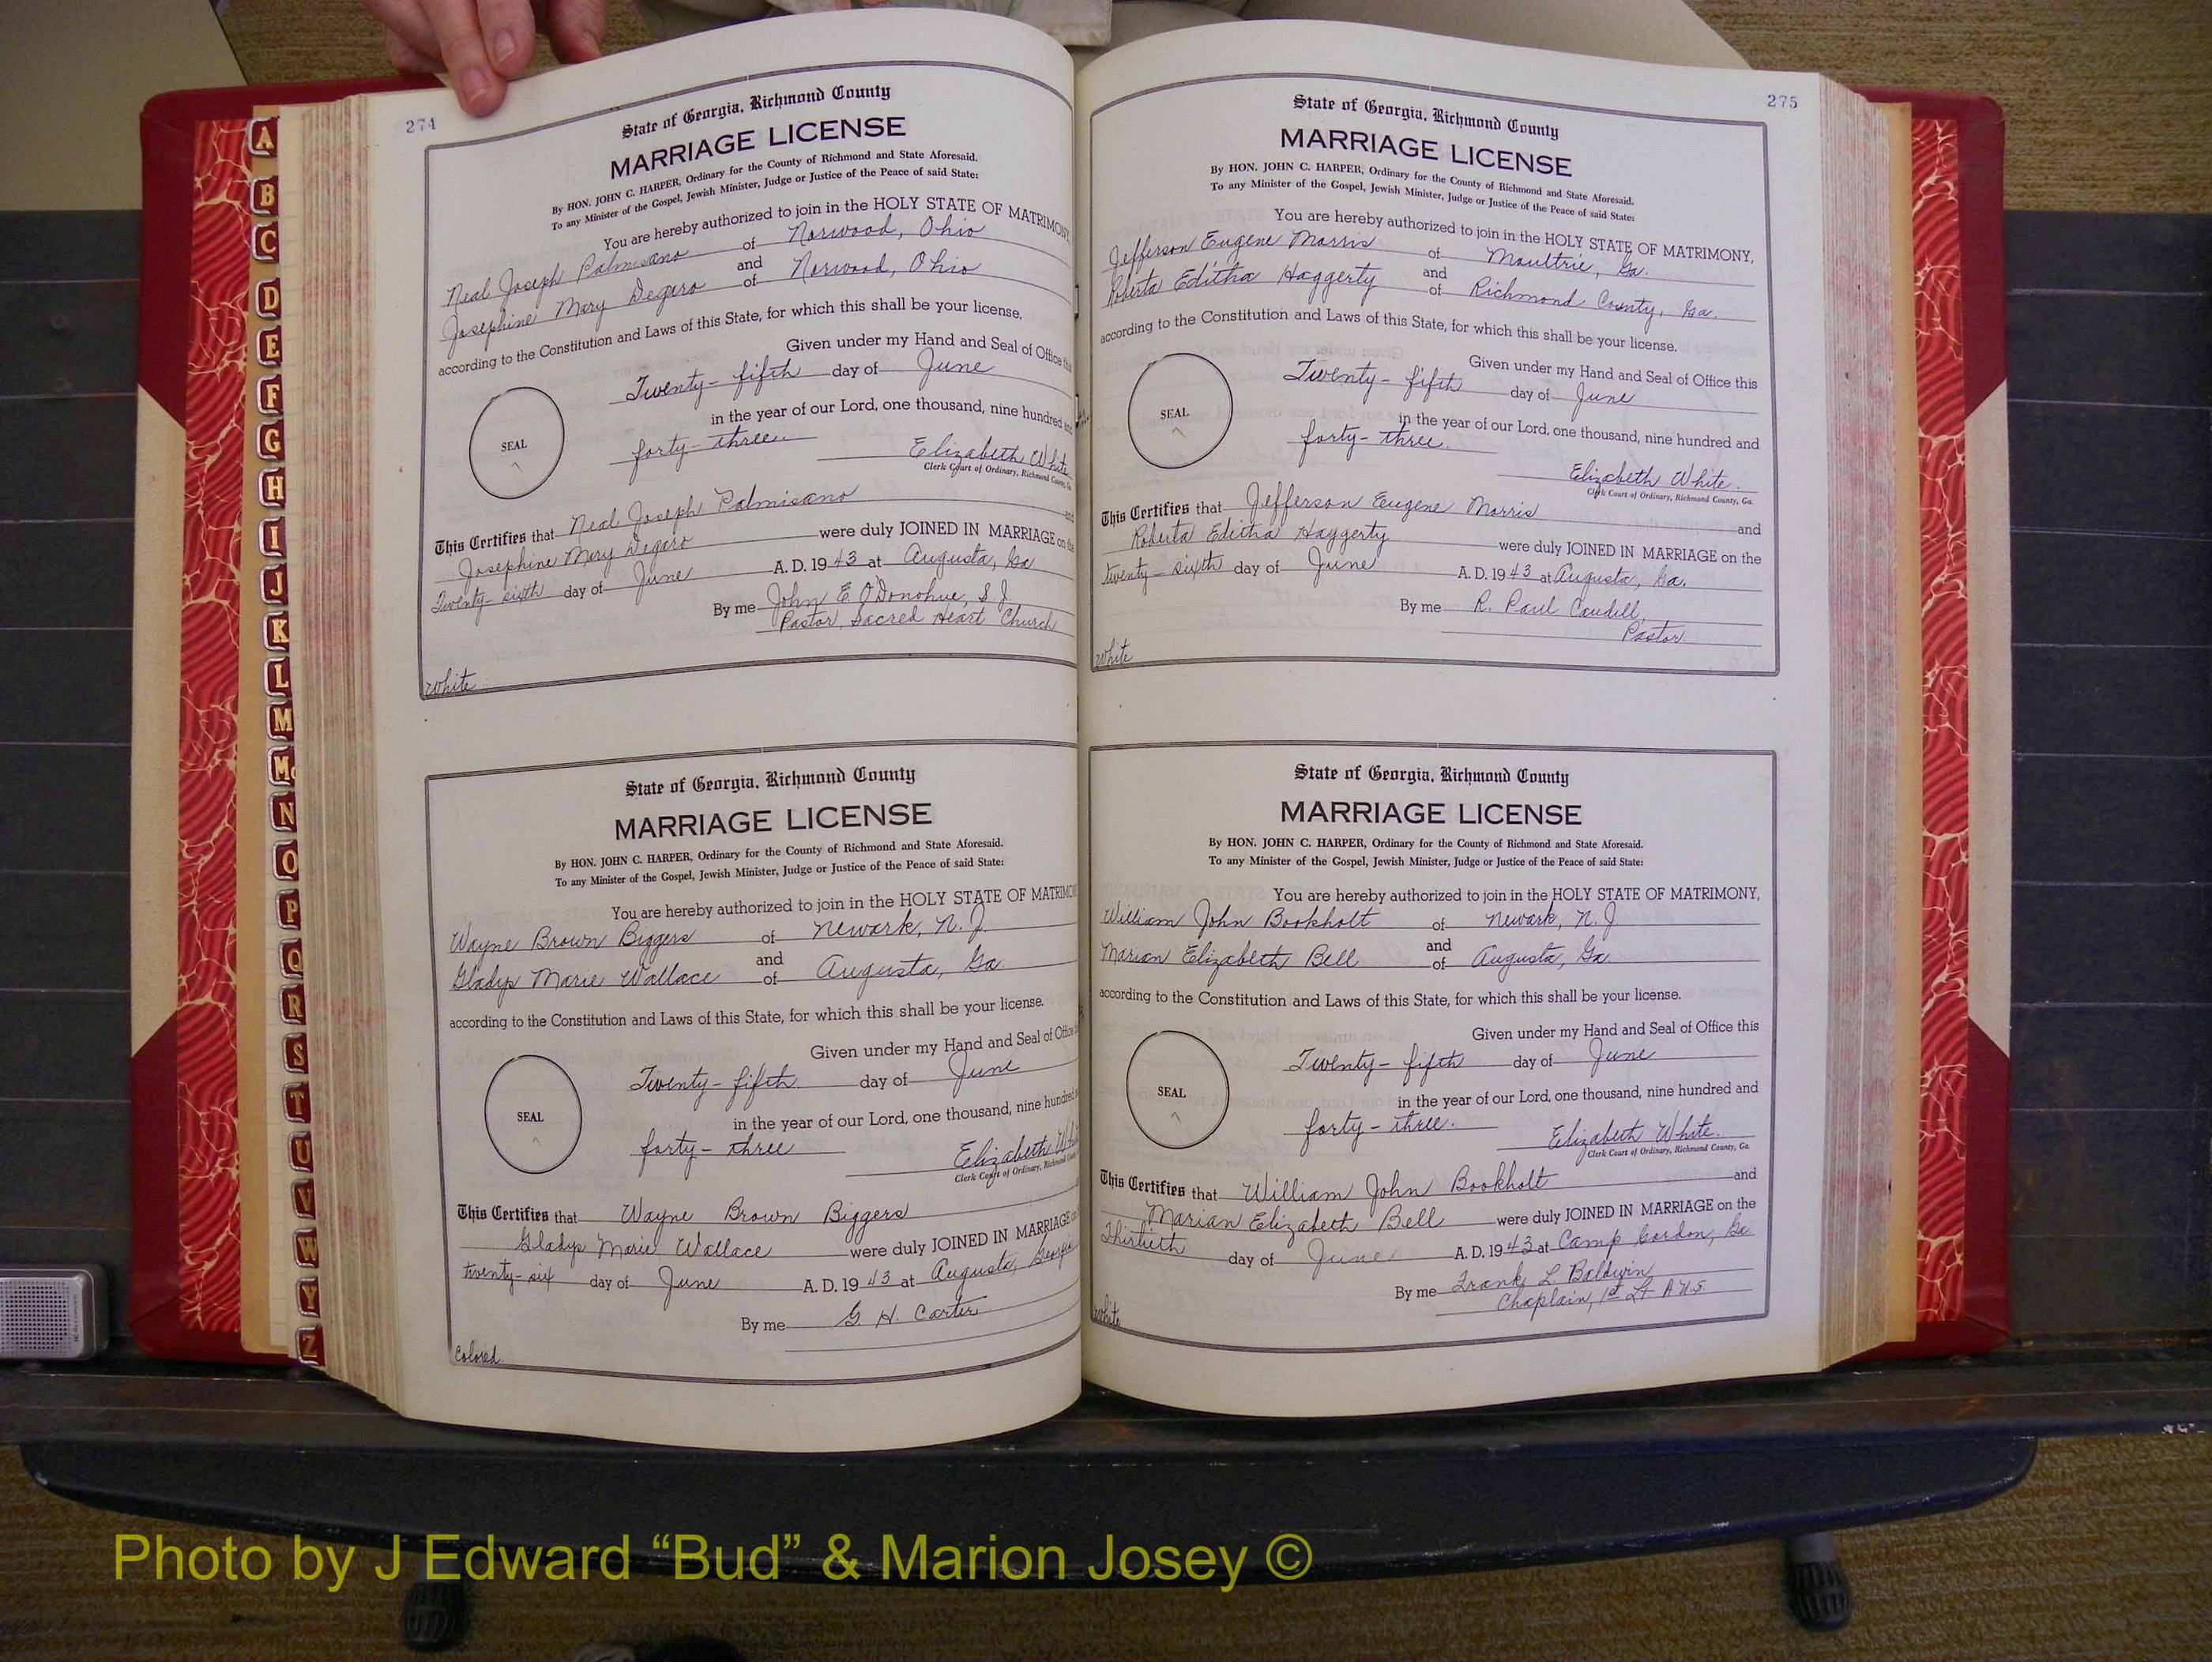 274
State of Georgia, Richmond County
MARRIAGE LICENSE
By HON. JOHN C. HARPER, Ordinary for the County of Richmond and State Aforesaid.
To any Minister of the Gospel, Jewish Minister, Judge or Justice of the Peace of said State:
You are hereby authorized to join in the HOLY STATE OF MATRIMONY
Neal Joseph Palmisano of Norwood, Ohio
and
Josephine Mary Degaro of Norwood, Ohio
according to the Constitution and Laws of this State, for which this shall be your license.
Given under my Hand and Seal of Office
Twenty-fifth day of June
in the year of our Lord, one thousand, nine hundred
SEAL
forty-three.
Elizabeth White
Clerk Court of Ordinary, Richmond County, Ga.
This Certifies that Neal Joseph Palmisano
Josephine Mary Degaro were duly JOINED IN MARRIAGE on
Twenty sixth day of June A. D. 1943 at Augusta, Ga
By me John E. O'Donohue, S. J.
Pastor, Sacred Heart Church
White
State of Georgia, Richmond County
MARRIAGE LICENSE
By HON. JOHN C. HARPER, Ordinary for the County of Richmond and State Aforesaid.
To any Minister of the Gospel, Jewish Minister, Judge or Justice of the Peace of said State:
You are hereby authorized to join in the HOLY STATE OF
Wayne Brown Biggers of Newark, N. J.
and
Gladys Marie Wallace of Augusta, Ga.
according to the Constitution and Laws of this State, for which this shall be your license.
Given under my Hand and Seal of Office
Twenty-fifth day of June
in the year of our Lord, one thousand, nine hundred
SEAL
forty-three
Elizabeth
Clerk Court of Ordinary, Richmond
This Certifies that Wayne Brown Biggers
Gladys Marie Wallace were duly JOINED IN MARRIAGE
twenty-six day of June A. D. 1943 at Augusta, Georgia
By me G. H. Carter
Colored
275
State of Georgia, Richmond County
MARRIAGE LICENSE
By HON. JOHN C. HARPER, Ordinary for the County of Richmond and State Aforesaid.
To any Minister of the Gospel, Jewish Minister, Judge or Justice of the Peace of said State:
You are hereby authorized to join in the HOLY STATE OF MATRIMONY,
Jefferson Eugene Morris of Moultrie, Ga.
and
Roberta Editha Haggerty of Richmond County, Ga.
according to the Constitution and Laws of this State, for which this shall be your license.
Given under my Hand and Seal of Office this
Twenty-fifth day of June
in the year of our Lord, one thousand, nine hundred and
SEAL
forty-three.
Elizabeth White.
Clerk Court of Ordinary, Richmond County, Ga.
This Certifies that Jefferson Eugene Morris and
Roberta Editha Haggerty were duly JOINED IN MARRIAGE on the
twenty-sixth day of June A. D. 1943 at Augusta, Ga.
By me R. Paul Caudill,
Pastor
White
State of Georgia, Richmond County
MARRIAGE LICENSE
By HON. JOHN C. HARPER, Ordinary for the County of Richmond and State Aforesaid.
To any Minister of the Gospel, Jewish Minister, Judge or Justice of the Peace of said State:
You are hereby authorized to join in the HOLY STATE OF MATRIMONY,
William John Bookholt of Newark, N. J.
and
Marian Elizabeth Bell of Augusta, Ga.
according to the Constitution and Laws of this State, for which this shall be your license.
Given under my Hand and Seal of Office this
Twenty-fifth day of June
in the year of our Lord, one thousand, nine hundred and
SEAL
forty-three.
Elizabeth White.
Clerk Court of Ordinary, Richmond County, Ga.
This Certifies that William John Bookholt and
Marian Elizabeth Bell were duly JOINED IN MARRIAGE on the
Thirtieth day of June A. D. 1943 at Camp Gordon, Ga
By me Frank L Baldwin
Chaplain, 1st Lt A.U.S.
White
A
B
C
D
E
F
G
H
I
J
K
L
M
Mc
N
O
P
Q
R
S
T
U
V
W
Y
Z
Photo by J Edward “Bud” & Marion Josey ©